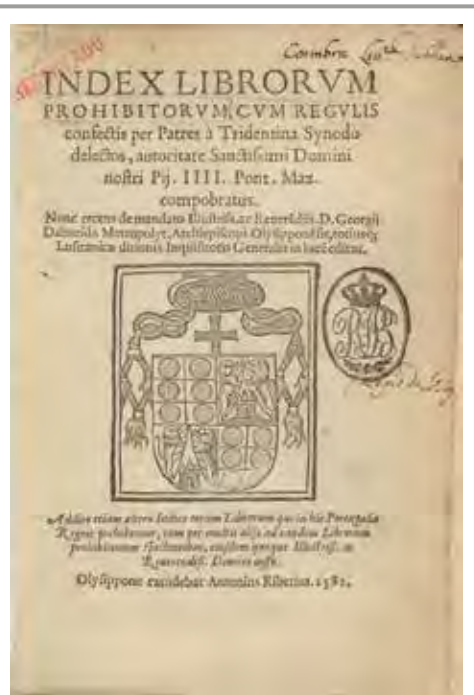 INDEX LIBRORVM
PROHIBITORVM, CVM REGVLIS
confectis per Patres à Tridentina Synodo
delectos, autoritate Sanctissimi Domini
nostri Pij. IIII. Pont. Max.
comprobatus.
Nunc recens de mandato Illustriss. ac Reuerediss. D. Georgij
Dalmeida Metropolyt, Archiepiscopi Olysipponesis, totiusq;
Lusitanicae ditionis Inquisitoris Generalis in lucē editus.
Addito etiam altero Indice eorum Librorum qui in his Portugaliae
Regnis prohibentur, cum per multis alijs ad eandem Librorum
prohibitionem spectantibus, eiusdem quoque Illustriss. ac
Reuerendiss. Domini iussu.
Olysippone excudebat Antonius Riberius. 1581.